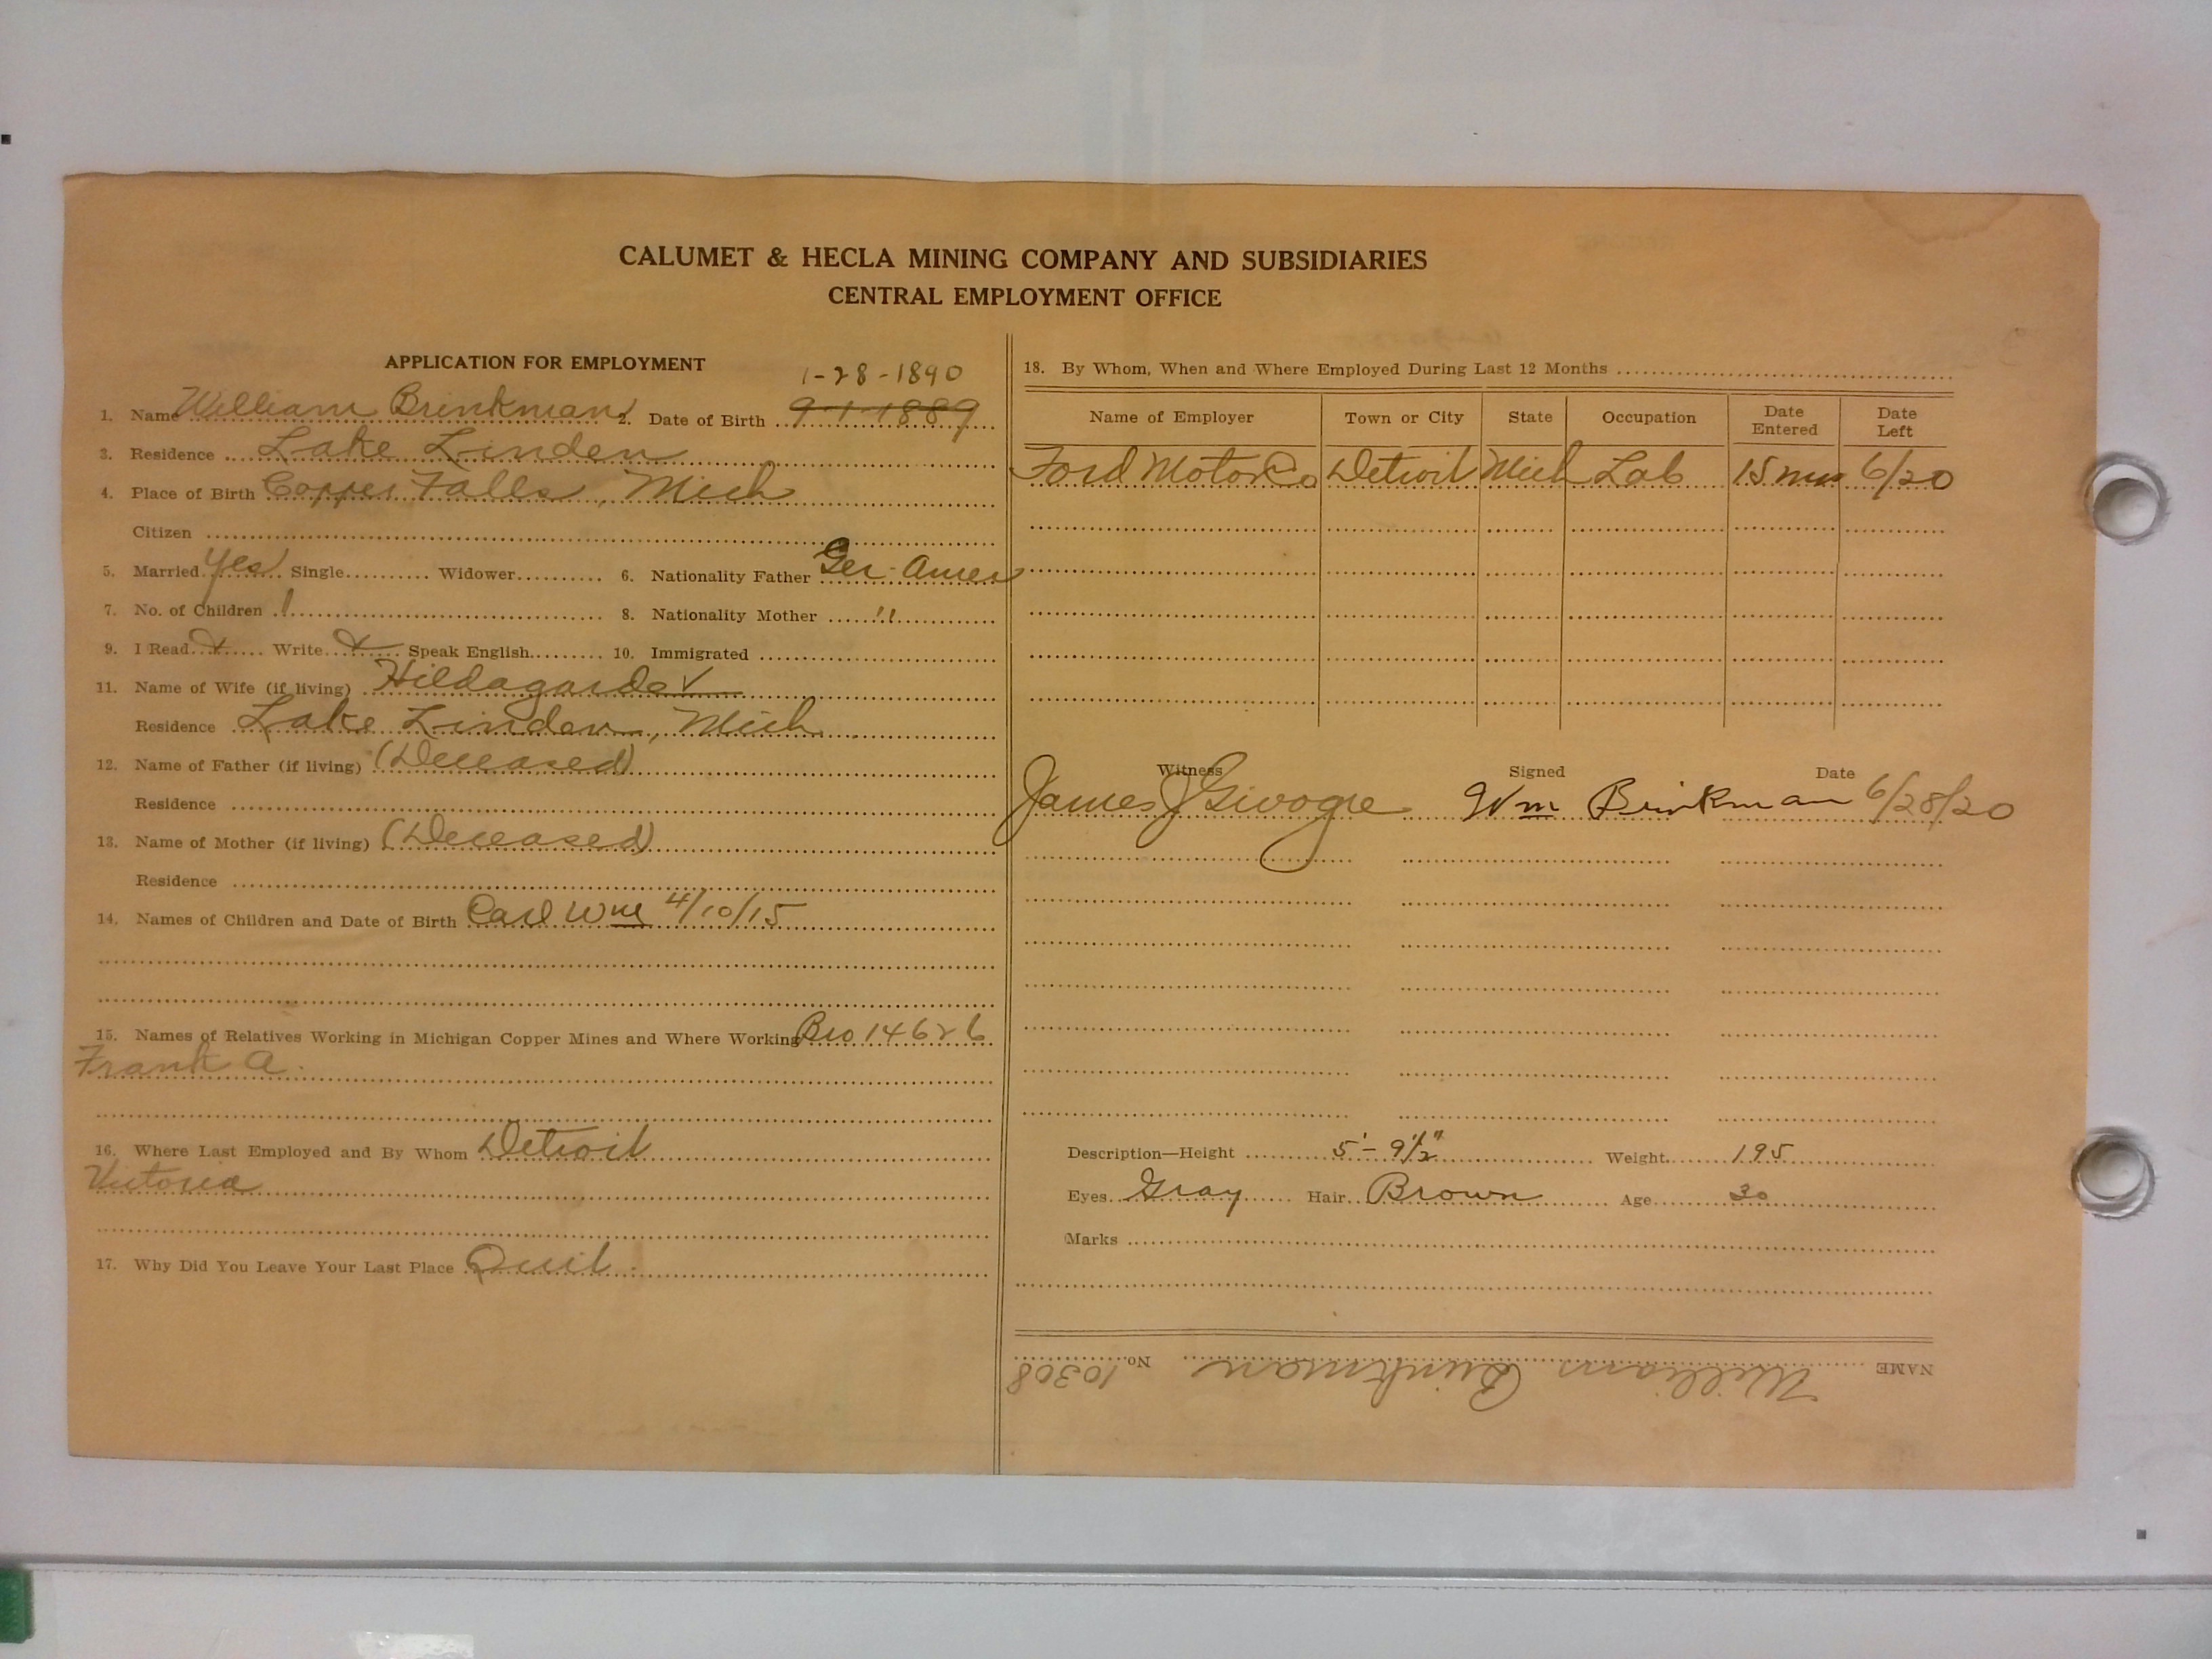 CALUMET & HECLA MINING COMPANY AND SUBSIDIARIES
CENTRAL EMPLOYMENT OFFICE
APPLICATION FOR EMPLOYMENT
1-28-1890
1. Name William Brinkman 2. Date of Birth 9-1-1889
3. Residence Lake Linden
4. Place of Birth Copper Falls, Mich
Citizen
5. Married yes Single Widower 6. Nationality Father Ger-Amer
7. No. of Children 1 8. Nationality Mother "
9. I Read x Write x Speak English 10. Immigrated
11. Name of Wife (if living) Hildagarde ✓
Residence Lake Linden, Mich
12. Name of Father (if living) (Deceased)
Residence
13. Name of Mother (if living) (Deceased)
Residence
14. Names of Children and Date of Birth Carl Wm 4/10/15
15. Names of Relatives Working in Michigan Copper Mines and Where Working Bro 14626
Frank A.
16. Where Last Employed and By Whom Detroit
Victoria
17. Why Did You Leave Your Last Place Quit.
18. By Whom, When and Where Employed During Last 12 Months
Name of Employer Town or City State Occupation Date Entered Date Left
Ford Motor Co Detroit Mich Lab 15 mos 6/20
Witness Signed Date
James J Wm Brinkman 6/28/20
Description—Height 5'-9½" Weight 195
Eyes Gray Hair Brown Age 30
Marks
NAME William Brinkman No. 10308